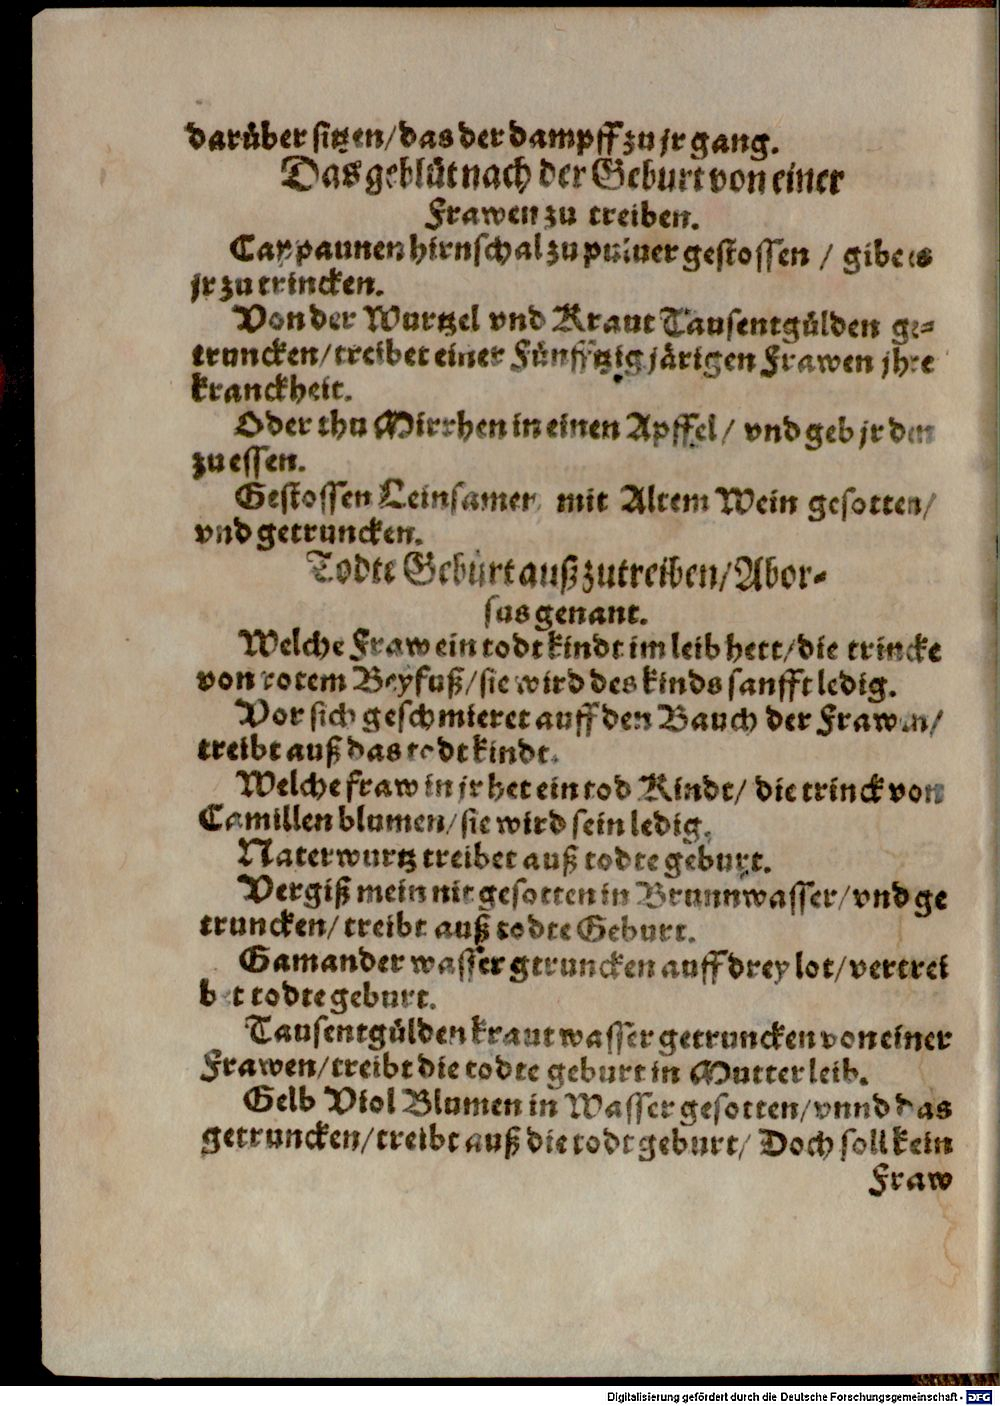 darüber sitzen/das der dampff zu jr gang.
Das geblüt nach der Geburt von einer
Frawen zu treiben.
Cappaunen hirnschal zu puluer gestossen / gib es
jr zu trincken.
Von der Wurtzel vnd Kraut Tausentgülden ge-
truncken/treibet einer Fünfftzig järigen Frawen jhre
kranckheit.
Oder thu Mirrhen in einen Apffel/ vnd geb jr den
zu essen.
Gestossen Leinsamen mit Altem Wein gesotten/
vnd getruncken.
Todte Geburt auß zutreiben/Abor-
sus genant.
Welche Fraw ein todt kindt im leib hett/die trincke
von rotem Beyfuß/sie wird des kinds sanfft ledig.
Vor sich geschmieret auff den Bauch der Frawen/
treibt auß das todt kindt.
Welche fraw in jr het ein tod Kindt/ die trinck von
Camillen blumen/sie wird sein ledig.
Naterwurtz treibet auß todte geburt.
Vergiß mein nit gesotten in Brunnwasser/vnd ge
truncken/treibt auß todte Geburt.
Gamander wasser getruncken auff drey lot/vertrei
bet todte geburt.
Tausentgülden kraut wasser getruncken von einer
Frawen/treibt die todte geburt in Mutter leib.
Gelb Viol Blumen in Wasser gesotten/vnnd das
getruncken/treibt auß die todt geburt/ Doch soll kein
Fraw
Digitalisierung gefördert durch die Deutsche Forschungsgemeinschaft - DFG